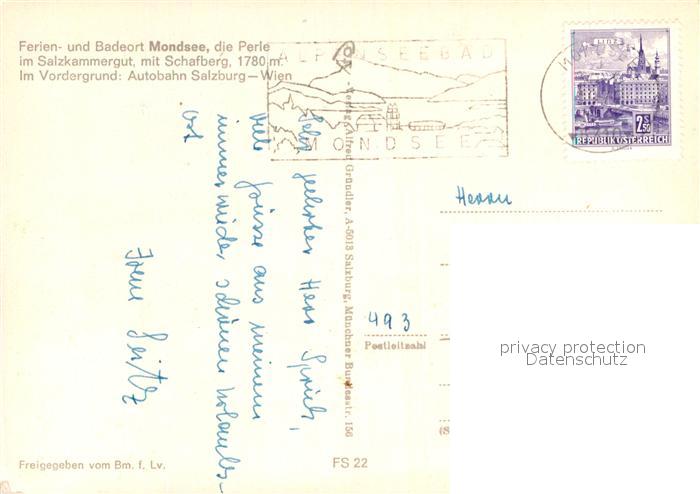 Ferien- und Badeort Mondsee, die Perle
im Salzkammergut, mit Schafberg, 1780 m.
Im Vordergrund: Autobahn Salzburg—Wien
ALPENSEEBAD
MONDSEE
LINZ
2.50
S
REPUBLIK ÖSTERREICH
Herrn
Sehr geehrter Herr
viele Grüsse aus meinem
immer wieder schönen Urlaubs-
ort
Irene Seitz
Verlag Alfred Gründler, A-5013 Salzburg, Münchner Bundesstr. 156
493
Postleitzahl
privacy protection
Datenschutz
Freigegeben vom Bm. f. Lv.
FS 22